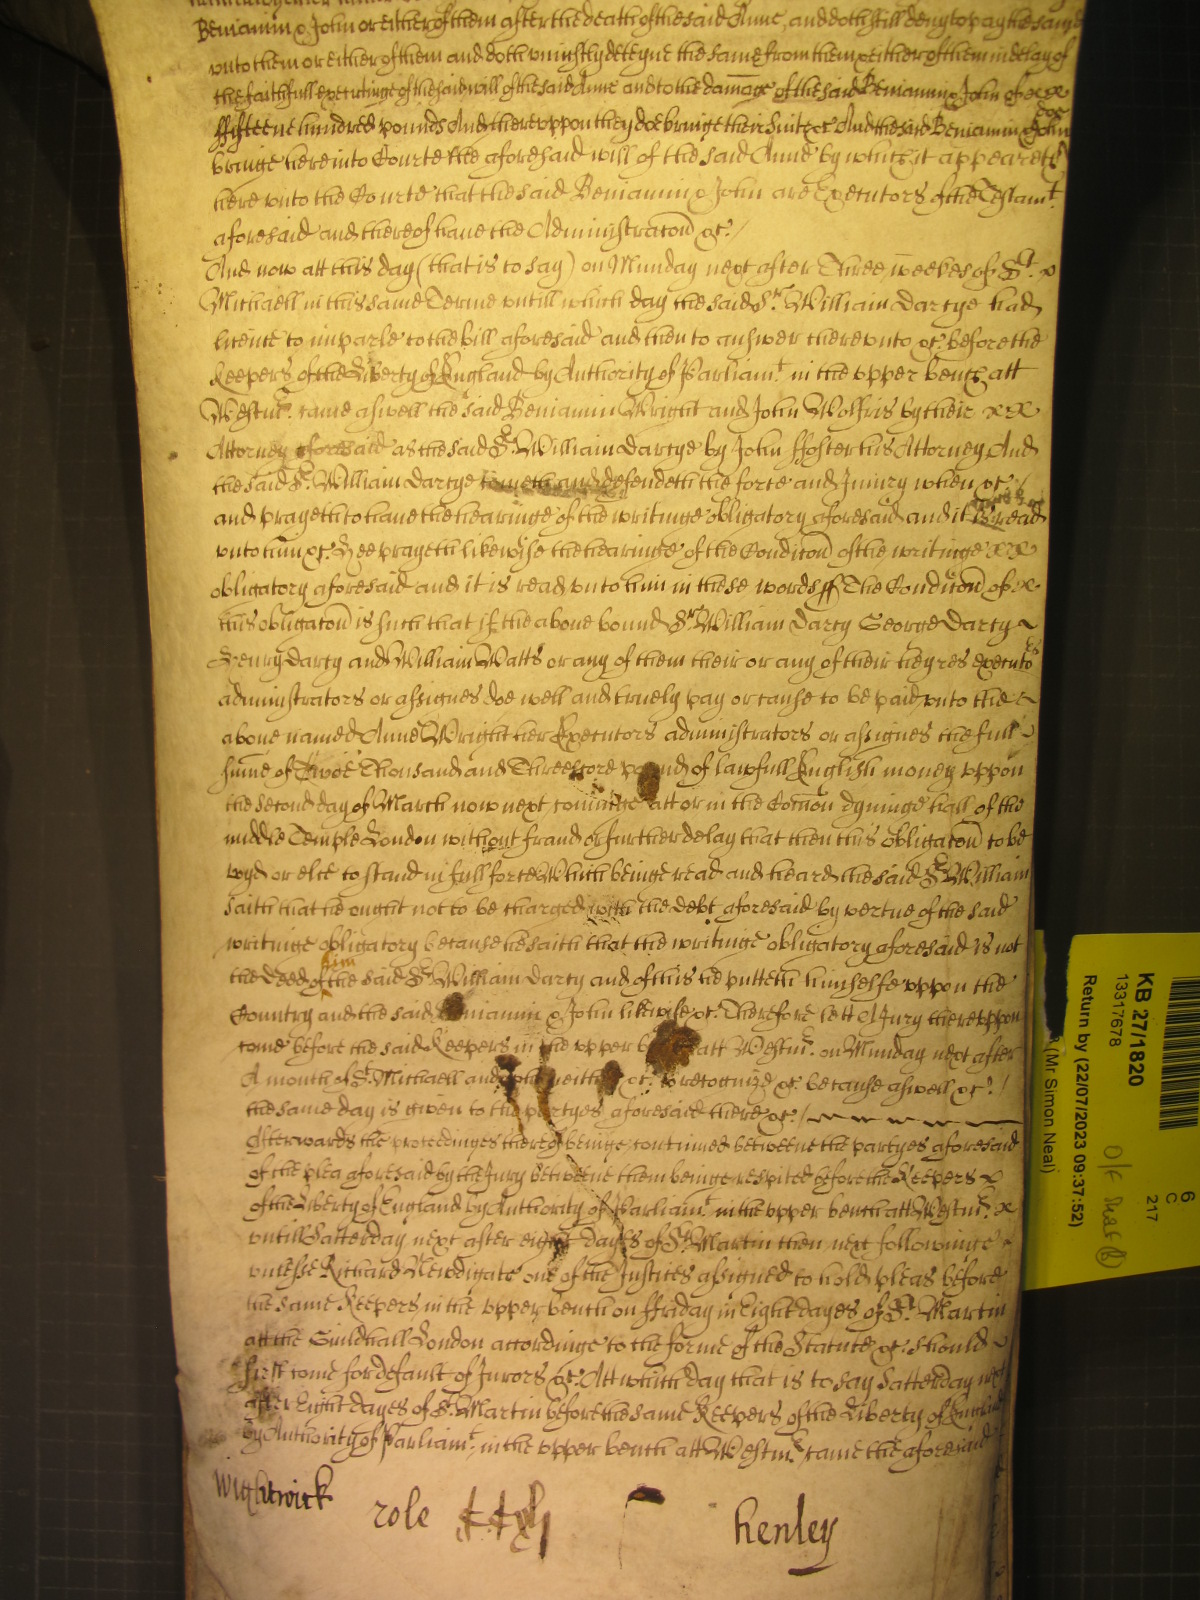 Beniamin & John or either of them after the death of the said Anne, and doth still deny to pay the same
unto them or either of them and doth uniustly deteyne the same from them & either of them in delay of
the faithfull executinge of the said will of the said Anne and to the damage of the said Beniamin & John of xx
doe
ffifteene hundred pounds And thereuppon they doe bringe their suite &c And the said Beniamin & John
bringe here into Courte the aforesaid will of the said Anne by which it appeareth
here unto the Courte that the said Beniamin & John are Executors of the Testamt.
aforesaid and thereof have the Administracon &c. /
And now att this day (that is to say) on Munday next after Three weekes of St. x
Michaell in this same Terme untill which day the said Sr. William Darcye had
licence to imparle to the bill aforesaid and then to answer thereunto &c. before the
Keepers of the Liberty of England by Authority of Parliamt. in the upper bench att
Westmr. came aswell the said Beniamin Wright and John Wolfris by their xxx
Attorney aforesaid as the said Sr. William Darcye by John ffoster his Attorney And
the said Sr. William Darcye cometh and defendeth the force and Iniury when &c. /
and prayeth to have the hearinge of the writinge obligatory aforesaid and it is read
unto him &c. Hee prayeth likewise the hearinge of the Condicon of the writinge xx
obligatory aforesaid and it is read unto him in these words ss The Condicon of x
this obligacon is such that if the above bound Sr. William Darcy George Darcy ~
Henry Darcy and William Watts or any of them their or any of their heyres executors
administrators or assignes doe well and truely pay or cause to be paid unto the
above named Anne Wright her Executors administrators or assignes the full
sume of Twoe Thousand and Threescore pounds of lawfull English money uppon
the second day of March now next cominge att or in the Comon dyninge hall of the
middle Temple London without fraud or further delay that then this obligacon to be
voyd or else to stand in full force Which beinge read and heard the said Sr. William
saith that he ought not to be charged with the debt aforesaid by vertue of the said
writinge obligatory because he saith that the writinge obligatory aforesaid is not
him
the deed of the said Sr. William Darcy and of this he putteth himselfe uppon the
Country and the said Beniamin & John likewise &c. Therefore lett A Jury thereuppon
come before the said Keepers in the upper bench att Westmr. on Munday next after
A month of St. Michaell and who neither &c. to recognize &c. because aswell &c. /
the same day is given to the partyes aforesaid there &c. /
Afterwards the proceedinges thereof beinge continued betweene the partyes aforesaid
of the plea aforesaid by the Jury betweene them beinge respited before the Keepers x
of the Liberty of England by Authority of Parliamt. in the upper bench att Westmr. x
untill Satterday next after eight dayes of St. Martin then next followinge
unlesse Richard Newdigate one of the Justices assigned to hold pleas before
the same Keepers in the upper bench on ffriday in Eight dayes of St. Martin
att the Guildhall London accordinge to the forme of the Statute &c. should
first come for default of Jurors &c. Att which day that is to say Satterday next
after Eight dayes of St. Martin before the same Keepers of the Liberty of England
by Authority of Parliamt. in the upper bench att Westmr. came the aforesaid
Wightwick
role
henley
KB 27/1820
13317678
Return by (22/07/2023 09:37:52)
(Mr Simon Neal)
6
C
217